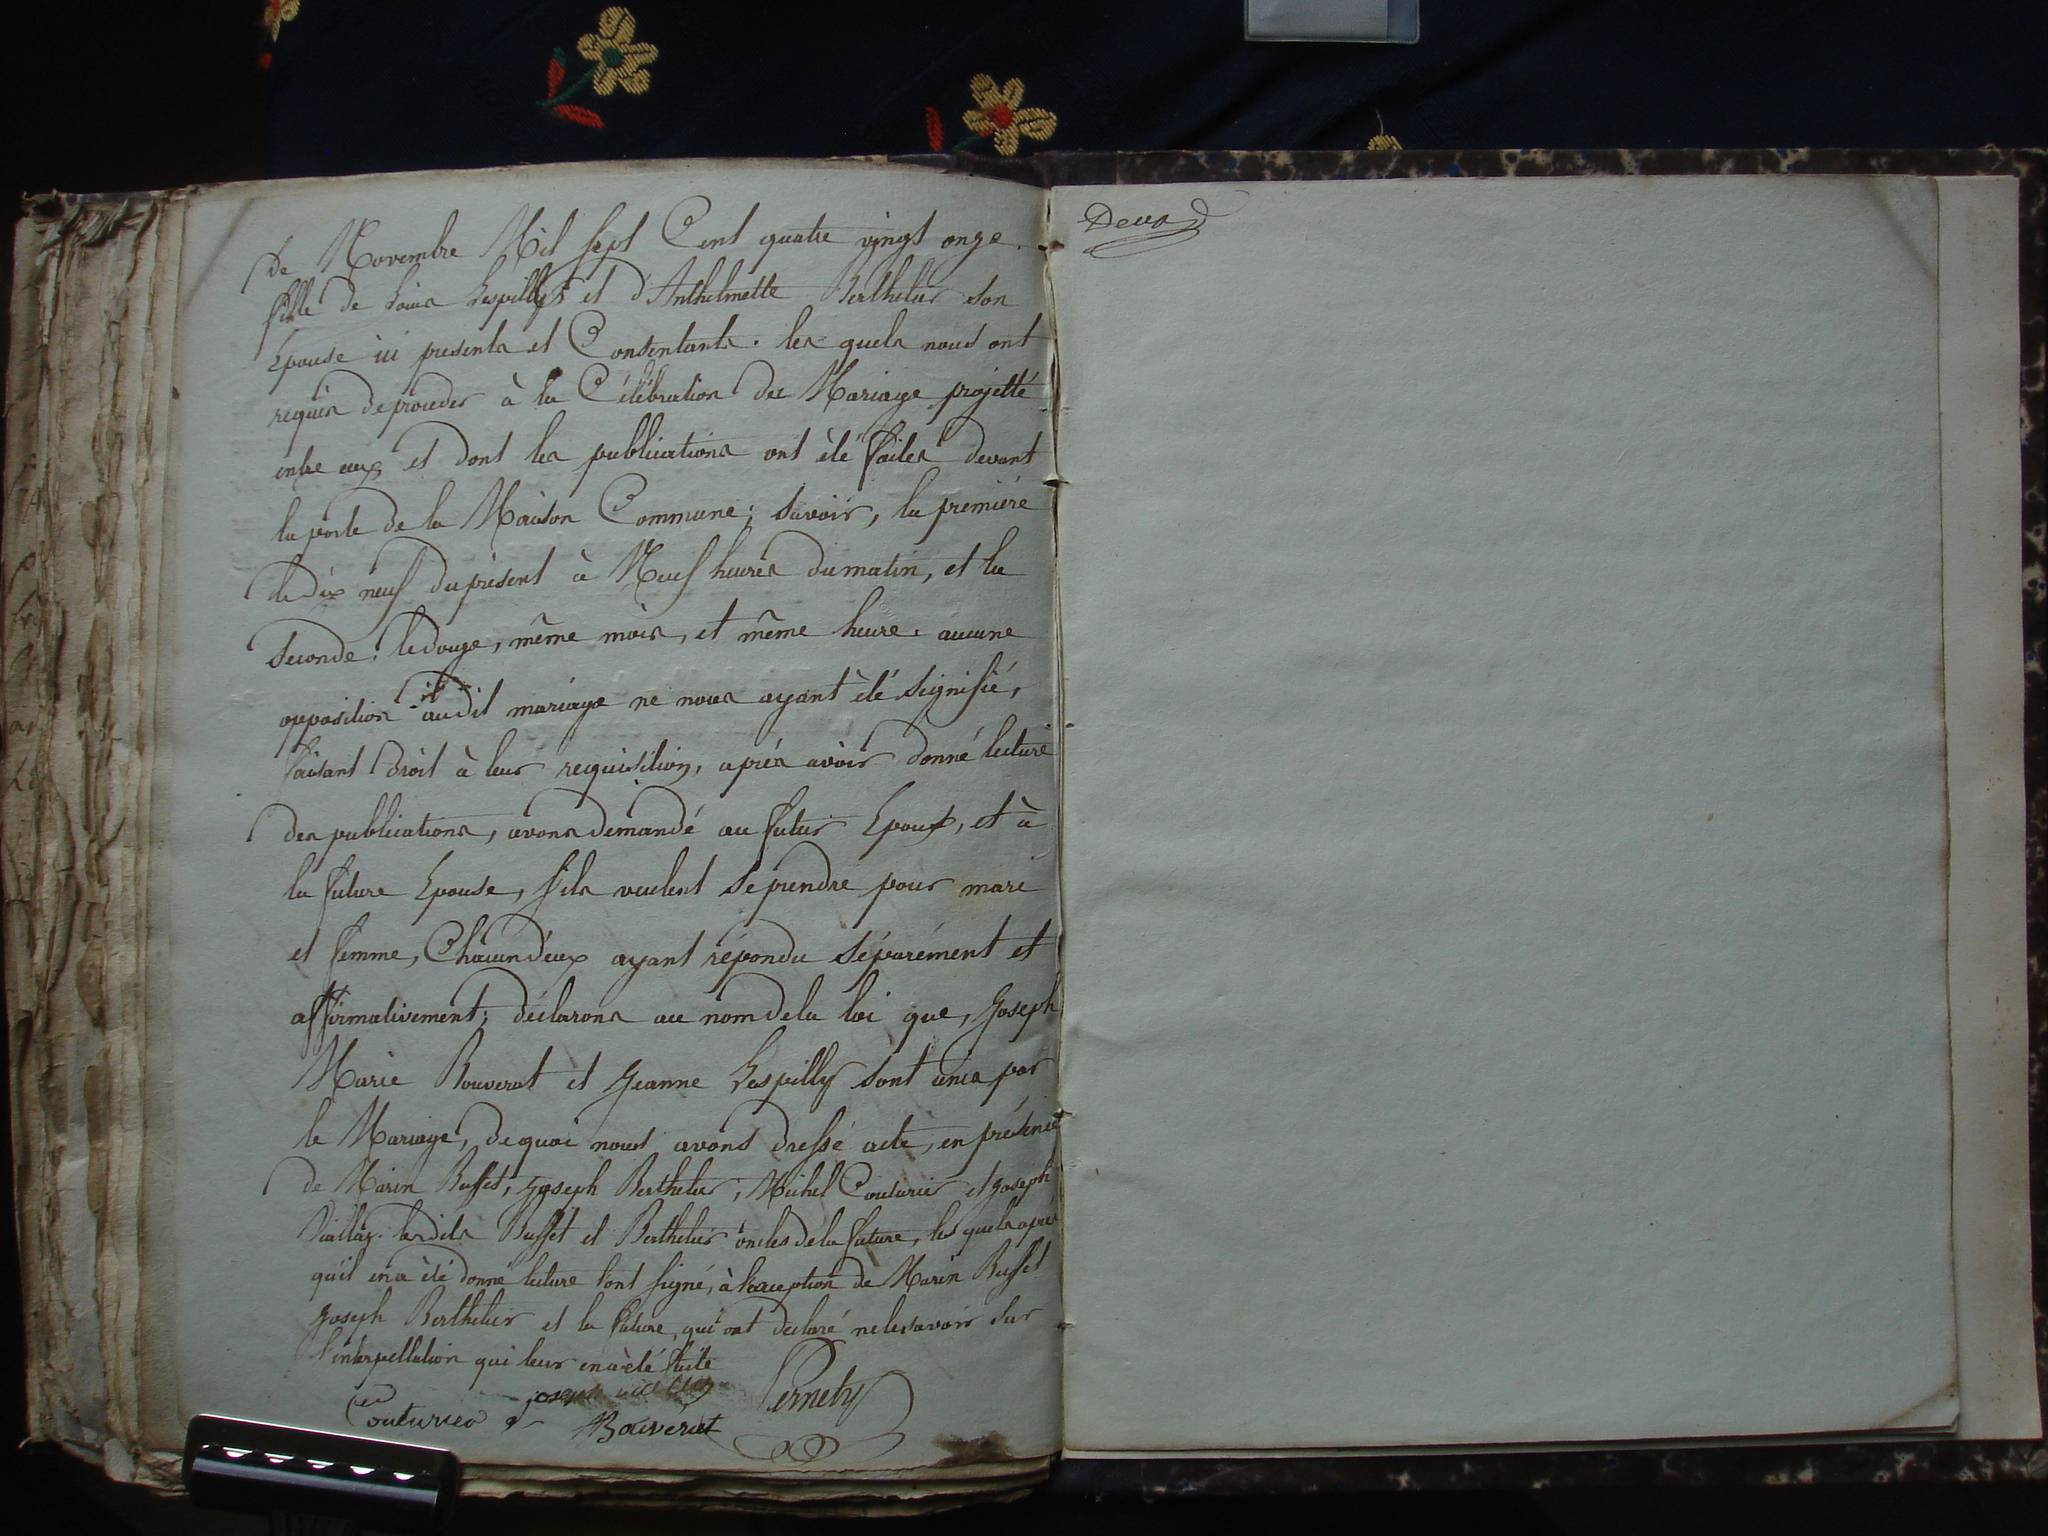 de Novembre Mil sept Cent quatre vingt onze.
fille de Louis Lespilly et d'Anthelmette Berthelier son
Epouse ici presents et Consentants. les quels nous ont
requis de proceder à la Célébration du Mariage projetté
entre eux et dont les publications ont èté faites devant
la porte de la Maison Commune; savoir, la première
le dix neuf du présent à Neuf heures du matin, et la
seconde, le douze, même mois, et même heure. aucune
opposition audit mariage ne nous ayant èté signifié,
faisant droit à leur requisition, après avoir donné lecture
des publications, avons demandé au futur Epoux, et à
la future Epouse, s'ils veulent se prendre pour mari
et femme, Chacun d'eux ayant répondu séparément et
affirmativement; déclarons au nom de la loi que, Joseph
Marie Bouverat et Jeanne Lespilly sont unis par
le Mariage, de quoi nous avons dressé acte, en présence
de Marin Buffet, Joseph Berthelier, Michel Couturier et Joseph
Viallaz. les dits Buffet et Berthelier oncles de la future, les quels après
qu'il en a èté donné lecture l'ont signé, à l'exception de Marin Buffet
Joseph Berthelier et la future, qui ont déclaré ne le savoir sur
l'interpellation qui leur en a èté faite
Couturier
Joseph
Bouverat
Pernety